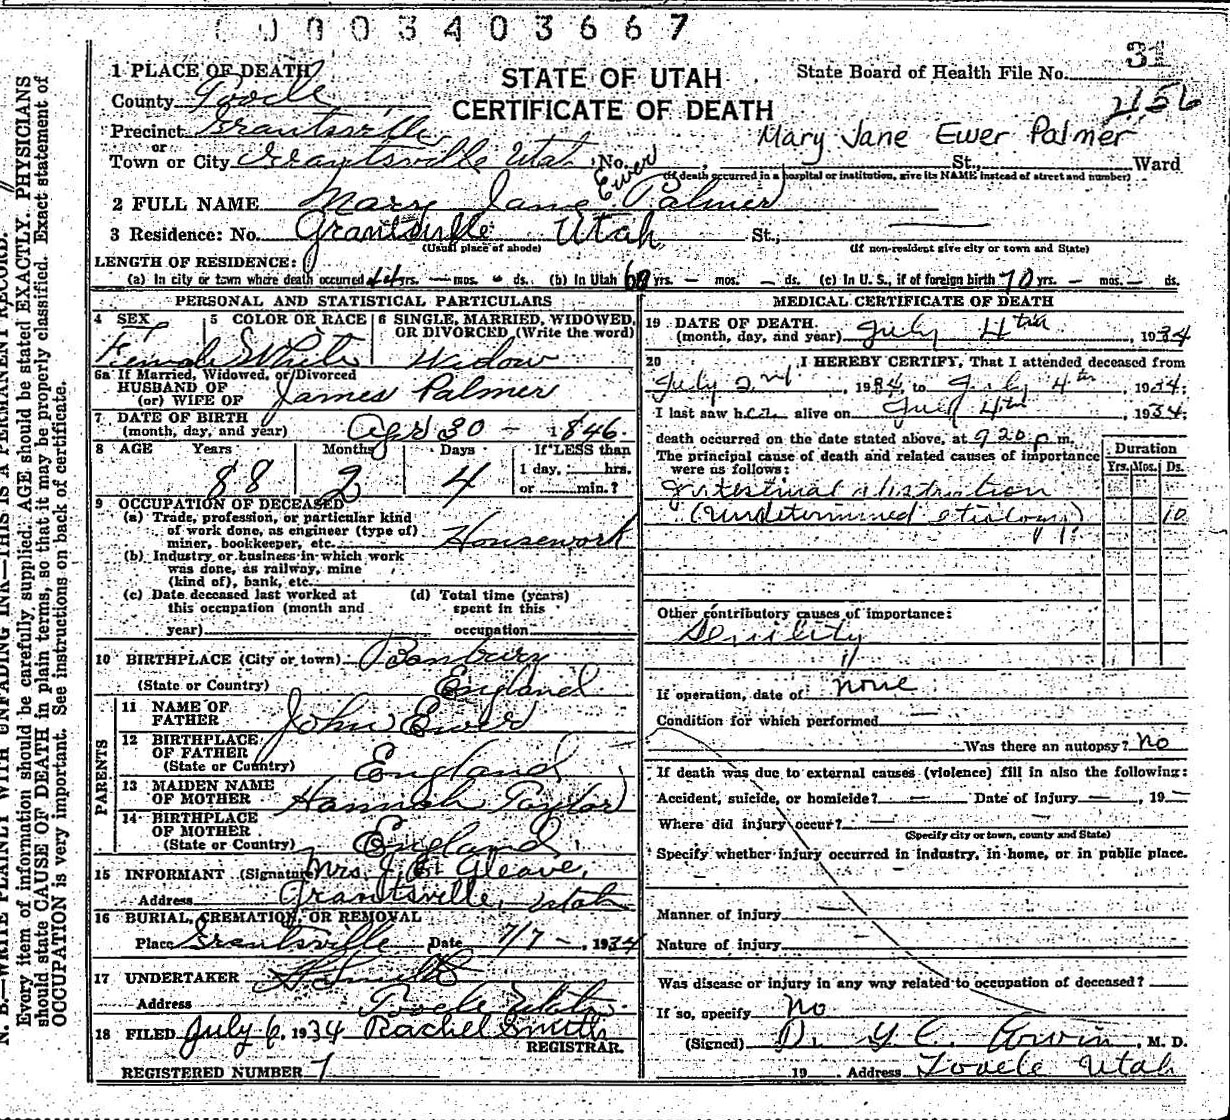 0 0 0 3 4 0 3 6 6 7
31
1 PLACE OF DEATH
STATE OF UTAH
CERTIFICATE OF DEATH
State Board of Health File No.
County Tooele
Precinct Grantsville
or
Mary Jane Ewer Palmer
Town or City Grantsville Utah, No. , St., Ward
(If death occurred in a hospital or institution, give its NAME instead of street and number)
Ewer
2 FULL NAME Mary Jane Palmer
3 Residence: No. Grantsville Utah St.,
(Usual place of abode) (If non-resident give city or town and State)
LENGTH OF RESIDENCE:
(a) In city or town where death occurred 44 yrs. — mos. - ds. (b) In Utah yrs. — mos. — ds. (c) In U. S., if of foreign birth 70 yrs. — mos. — ds.
PERSONAL AND STATISTICAL PARTICULARS
4 SEX 5 COLOR OR RACE 6 SINGLE, MARRIED, WIDOWED, OR DIVORCED (Write the word)
Female White Widow
6a If Married, Widowed, or Divorced
HUSBAND OF
(or) WIFE OF James Palmer
7 DATE OF BIRTH
(month, day, and year) Apr 30 - 1846.
8 AGE Years Months Days If LESS than
1 day, hrs.
or min.?
88 2 4
9 OCCUPATION OF DECEASED
(a) Trade, profession, or particular kind
of work done, as engineer (type of)
miner, bookkeeper, etc. Housework
(b) Industry or business in which work
was done, as railway, mine
(kind of), bank, etc.
(c) Date deceased last worked at
this occupation (month and
year)
(d) Total time (years)
spent in this
occupation
10 BIRTHPLACE (City or town) Banbury
(State or Country) England
PARENTS
11 NAME OF
FATHER John Ewer
12 BIRTHPLACE
OF FATHER
(State or Country) England
13 MAIDEN NAME
OF MOTHER Hannah Taylor
14 BIRTHPLACE
OF MOTHER
(State or Country) England
15 INFORMANT (Signature) Mrs. J. Gleave,
Address Grantsville, Utah
16 BURIAL, CREMATION, OR REMOVAL
Place Grantsville Date 7/7 - , 1934
17 UNDERTAKER
Address Tooele Utah.
18 FILED July 6, 1934 Rachel Smith
REGISTRAR.
REGISTERED NUMBER 7
MEDICAL CERTIFICATE OF DEATH
19 DATE OF DEATH
(month, day, and year) July 4th , 1934
20 I HEREBY CERTIFY, That I attended deceased from
July 2nd. , 1934 to July 4th , 1934;
I last saw her alive on July 4th , 1934;
death occurred on the date stated above, at 920 p.m.
The principal cause of death and related causes of importance
were as follows:
Duration
Yrs. Mos. Ds.
Intestinal obstruction
(Undetermined etiology) 10
Other contributory causes of importance:
Senility
If operation, date of none
Condition for which performed —
Was there an autopsy? no
If death was due to external causes (violence) fill in also the following:
Accident, suicide, or homicide? — Date of Injury — , 19 —
Where did injury occur? —
(Specify city or town, county and State)
Specify whether injury occurred in industry, in home, or in public place.
Manner of injury
Nature of injury
Was disease or injury in any way related to occupation of deceased?
If so, specify No
(Signed) , M. D.
19 Address Tooele Utah
N. B.—WRITE PLAINLY WITH UNFADING INK—THIS IS A PERMANENT RECORD.
Every item of information should be carefully supplied. AGE should be stated EXACTLY. PHYSICIANS
should state CAUSE OF DEATH in plain terms, so that it may be properly classified. Exact statement of
OCCUPATION is very important. See instructions on back of certificate.